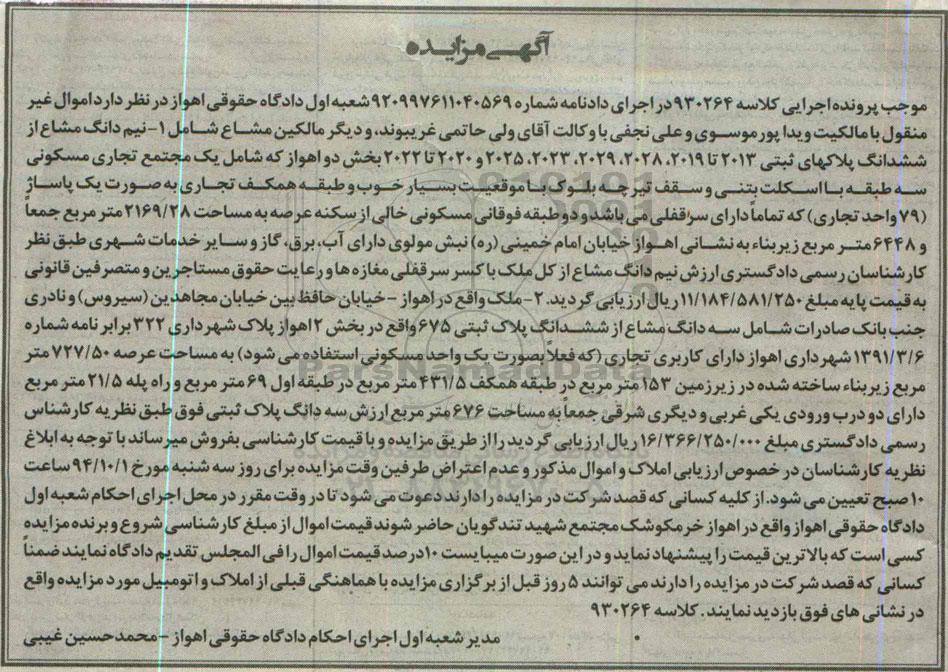 آگهی مزایده
موجب پرونده اجرایی کلاسه ۹۳۰۲۶۴ در اجرای دادنامه شماره ۹۲۰۹۹۷۶۱۱۰۴۰۵۶۹ شعبه اول دادگاه حقوقی اهواز در نظر دارد اموال غیر
منقول با مالکیت ویدا پورموسوی و علی نجفی با وکالت آقای ولی حاتمی غریبوند، و دیگر مالکین مشاع شامل ۱- نیم دانگ مشاع از
ششدانگ پلاکهای ثبتی ۲۰۱۳ تا ۲۰۱۹، ۲۰۲۸، ۲۰۲۹، ۲۰۲۳، ۲۰۲۵ و ۲۰۲۰ تا ۲۰۲۲ بخش دو اهواز که شامل یک مجتمع تجاری مسکونی
سه طبقه با اسکلت بتنی و سقف تیرچه بلوک با موقعیت بسیار خوب و طبقه همکف تجاری به صورت یک پاساژ
(۷۹ واحد تجاری) که تماماً دارای سرقفلی می باشد و دو طبقه فوقانی مسکونی خالی از سکنه عرصه به مساحت ۲۱۶۹/۲۸ متر مربع جمعاً
و ۶۴۴۸ متر مربع زیربناء به نشانی اهواز خیابان امام خمینی (ره) نبش مولوی دارای آب، برق، گاز و سایر خدمات شهری طبق نظر
کارشناسان رسمی دادگستری ارزش نیم دانگ مشاع از کل ملک با کسر سرقفلی مغازه ها و رعایت حقوق مستاجرین و متصرفین قانونی
به قیمت پایه مبلغ ۱۱/۱۸۴/۵۸۱/۲۵۰ ریال ارزیابی گردید. ۲- ملک واقع در اهواز - خیابان حافظ بین خیابان مجاهدین (سیروس) و نادری
جنب بانک صادرات شامل سه دانگ مشاع از ششدانگ پلاک ثبتی ۶۷۵ واقع در بخش ۲ اهواز پلاک شهرداری ۳۲۲ برابر نامه شماره
۱۳۹۱/۳/۶ شهرداری اهواز دارای کاربری تجاری (که فعلاً بصورت یک واحد مسکونی استفاده می شود) به مساحت عرصه ۷۲۷/۵۰ متر
مربع زیربناء ساخته شده در زیرزمین ۱۵۳ متر مربع در طبقه همکف ۴۳۱/۵ متر مربع در طبقه اول ۶۹ متر مربع و راه پله ۲۱/۵ متر مربع
دارای دو درب ورودی یکی غربی و دیگری شرقی جمعاً به مساحت ۶۷۶ متر مربع ارزش سه دانگ پلاک ثبتی فوق طبق نظریه کارشناس
رسمی دادگستری مبلغ ۱۶/۳۶۶/۲۵۰/۰۰۰ ریال ارزیابی گردید را از طریق مزایده و با قیمت کارشناسی بفروش میرساند با توجه به ابلاغ
نظریه کارشناسان در خصوص ارزیابی املاک و اموال مذکور و عدم اعتراض طرفین وقت مزایده برای روز سه شنبه مورخ ۹۴/۱۰/۱ ساعت
۱۰ صبح تعیین می شود. از کلیه کسانی که قصد شرکت در مزایده را دارند دعوت می شود تا در وقت مقرر در محل اجرای احکام شعبه اول
دادگاه حقوقی اهواز واقع در اهواز خرمکوشک مجتمع شهید تندگویان حاضر شوند قیمت اموال از مبلغ کارشناسی شروع و برنده مزایده
کسی است که بالاترین قیمت را پیشنهاد نماید و در این صورت میبایست ۱۰ درصد قیمت اموال را فی المجلس تقدیم دادگاه نمایند ضمناً
کسانی که قصد شرکت در مزایده را دارند می توانند ۵ روز قبل از برگزاری مزایده با هماهنگی قبلی از املاک و اتومبیل مورد مزایده واقع
در نشانی های فوق بازدید نمایند. کلاسه ۹۳۰۲۶۴
مدیر شعبه اول اجرای احکام دادگاه حقوقی اهواز - محمدحسین غیبی
ParsNamadData